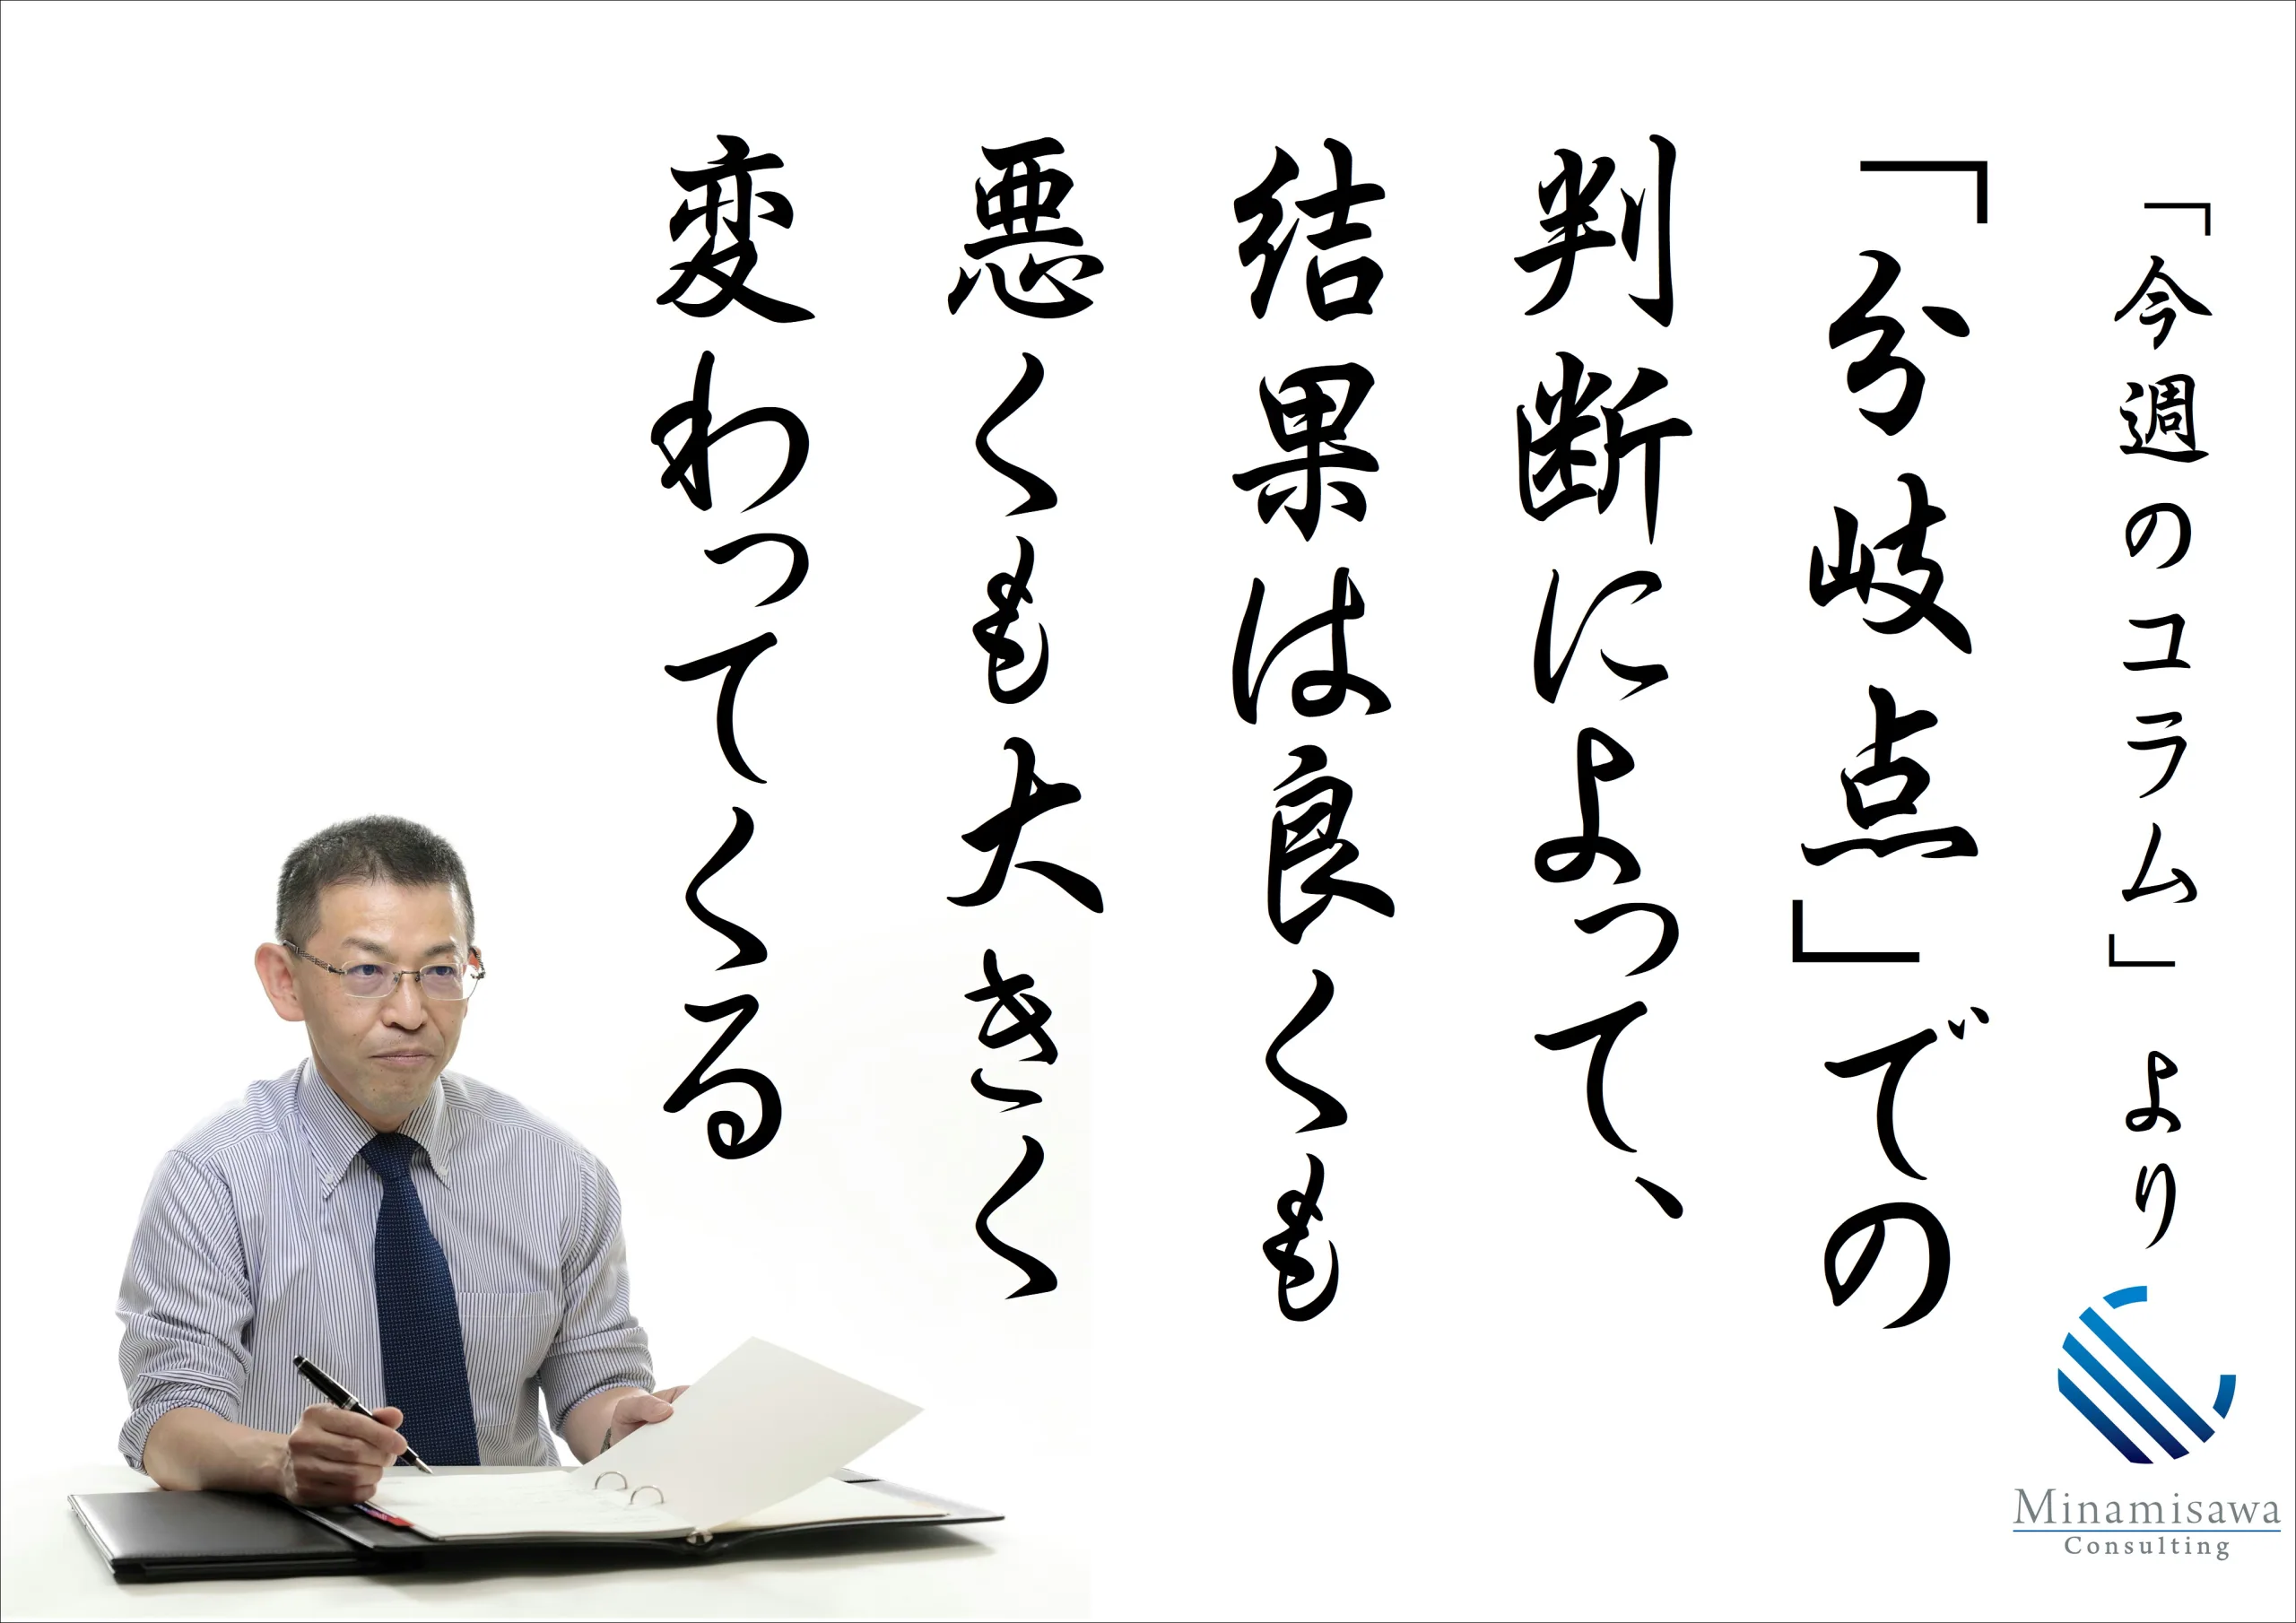 「今週のコラム」より
「分岐点」での
判断によって、
結果は良くも
悪くも大きく
変わってくる
Minamisawa
Consulting